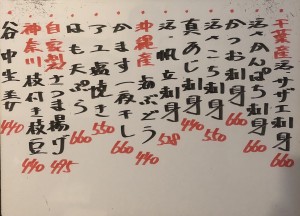 千葉産 活サザエ刺身 660
活かんぱち刺身 660
かつお刺身 660
真あじ刺身 550
活・帆立刺身 528
沖縄産 海ぶどう 440
かます一夜干し 660
アユ塩焼き 550
はも天ぷら 660
自家製さつま揚げ 495
神奈川枝付き枝豆 440
谷中生姜 440